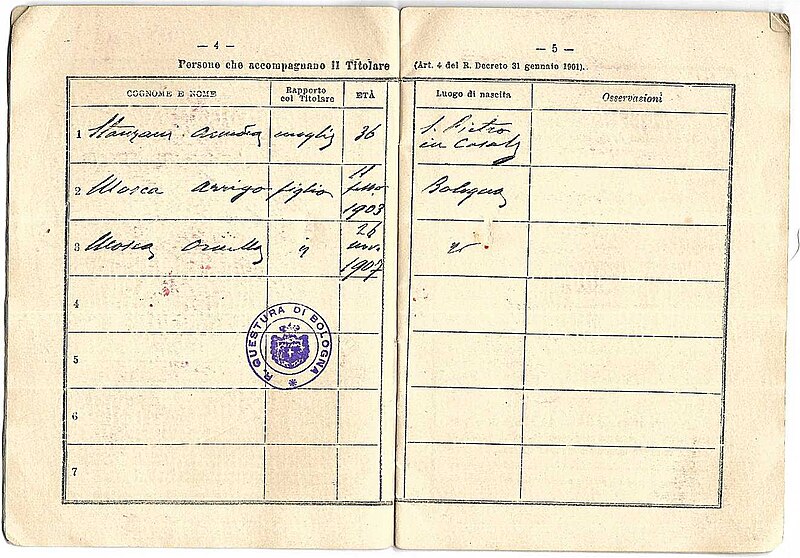 — 4 —
Persone che accompagnano il Titolare
COGNOME E NOME
Rapporto
col Titolare
ETÀ
1 Stanzani moglie 36
2 Mosca Arrigo figlio 11
1903
3 Mosca " 26
1907
4
5
6
7
R. QUESTURA DI BOLOGNA
— 5 —
(Art. 4 del R. Decreto 31 gennaio 1901).
Luogo di nascita
Osservazioni
S. Pietro
in Casale
Bologna